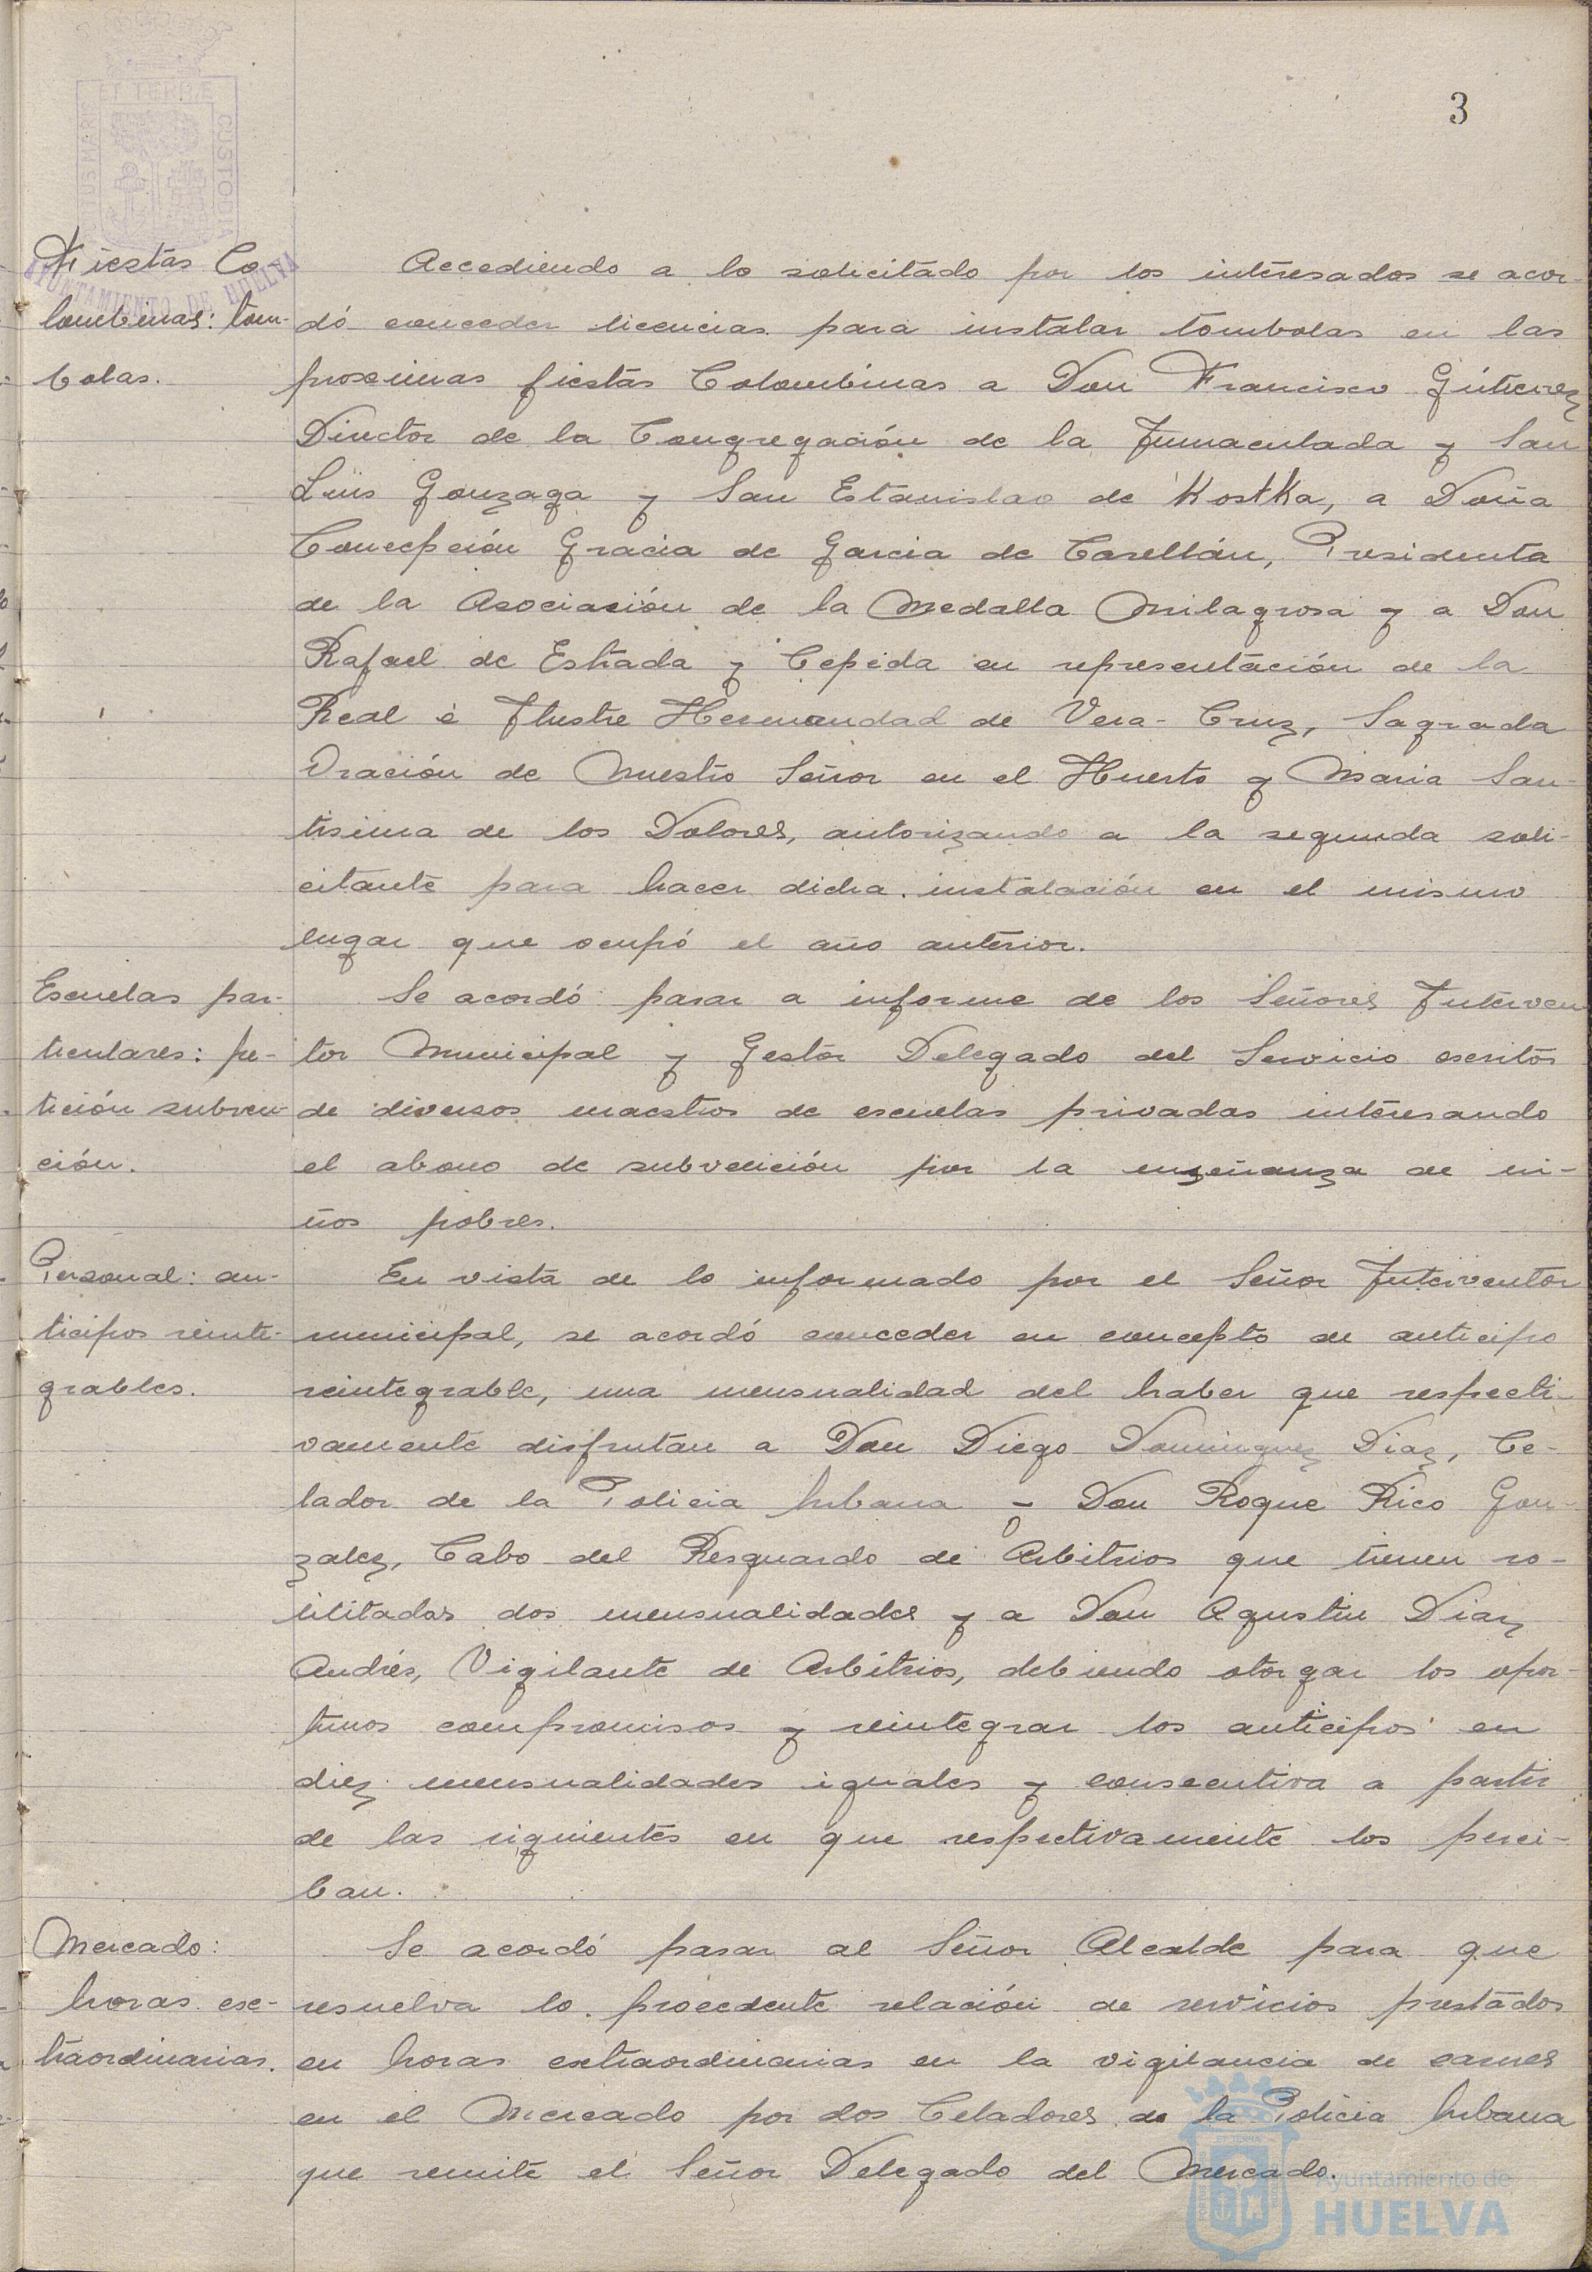 3
Fiestas Co-
lombinas: tóm-
bolas.
Accediendo a lo solicitado por los interesados se acor-
dó conceder licencias para instalar tómbolas en las
proximas fiestas Colombinas a Don Francisco Gutierrez
Director de la Congregación de la Inmaculada y San
Luis Gonzaga y San Estanislao de Kostka, a Doña
Concepción Gracia de Garcia de Casellán, Presidenta
de la Asociación de la Medalla Milagrosa y a Don
Rafael de Estrada y Cepeda en representación de la
Real é Ilustre Hermandad de Vera-Cruz, Sagrada
Oración de Nuestro Señor en el Huerto y Maria San-
tisima de los Dolores, autorizando a la segunda soli-
citante para hacer dicha instalación en el mismo
lugar que ocupó el año anterior.
Escuelas par-
ticulares: pe-
tición subven-
ción.
Se acordó pasar a informe de los Señores Interven
tor Municipal y Gestor Delegado del Servicio escritos
de diversos maestros de escuelas privadas interesando
el abono de subvención por la enseñanza de ni-
ños pobres.
Personal: an-
ticipos reinte-
grables.
En vista de lo informado por el Señor Interventor
municipal, se acordó conceder en concepto de anticipo
reintegrable, una mensualidad del haber que respecti-
vamente disfrutan a Don Diego Dominguez Diaz, Ce-
lador de la Policia Urbana y Don Roque Rico Gon-
zalez, Cabo del Resguardo de Arbitrios que tienen so-
licitadas dos mensualidades y a Don Agustin Diaz
Andrés, Vigilante de Arbitrios, debiendo otorgar los opor-
tunos compromisos y reintegrar los anticipos en
diez mensualidades iguales y consecutiva a partir
de las siguientes en que respectivamente los perci-
ban.
Mercado:
horas ex-
traordinarias.
Se acordó pasar al Señor Alcalde para que
resuelva lo procedente relación de servicios prestados
en horas extraordinarias en la vigilancia de carnes
en el Mercado por dos Celadores de la Policia Urbana
que remite el Señor Delegado del Mercado.
Ayuntamiento de
HUELVA
AYUNTAMIENTO DE HUELVA